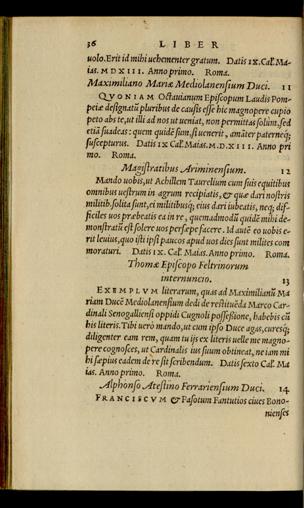 36 LIBER
uolo. Erit id mihi uehementer gratum. Datis IX. Cal. Ma-
ias. MDXIII. Anno primo. Roma.
Maximiliano Mariæ Mediolanensium Duci. 11
QVONIAM Octauianum Episcopum Laudis Pom-
peiæ designatū pluribus de causis esse hic magnopere cupio
peto abs te, ut illi ad nos ut ueniat, non permittas solum, sed
etiā suadeas: quem quidē sum, si uenerit, amāter paterneq;
suscepturus. Datis IX Cal. Maias. M.D.XIII. Anno pri
mo. Roma.
Magistratibus Ariminensium. 12
Mando uobis, ut Achillem Taurelium cum suis equitibus
omnibus uestrum in agrum recipiatis, & quæ dari nostris
militib. solita sunt, ei militibusq; eius dari iubeatis, neq; dif-
ficiles uos præbeatis ea in re, quemadmodū quidē mihi de-
monstratū est solere uos persæpe facere. Id autē eo uobis e-
rit leuius, quo isti ipsi paucos apud uos dies sunt milites com
moraturi. Datis IX. Cal. Maias. Anno primo. Roma.
Thomæ Episcopo Feltrinorum
internuncio. 13
EXEMPLVM literarum, quas ad Maximilianū Ma
riam Ducē Mediolanensium dedi de restituēda Marco Car-
dinali Senogalliensi oppidi Cugnoli possessione, habebis cū
his literis. Tibi uero mando, ut cum ipso Duce agas, cures q;
diligenter eam rem, quam tu ijs ex literis uelle me magno-
pere cognosces, ut Cardinalis ius suum obtineat, ne iam mi
hi sæpius eadem de re sit scribendum. Datis sexto Cal. Ma
ias. Anno primo. Roma.
Alphonso Atestino Ferrariensium Duci. 14
FRANCISCVM & Pasotum Fantutios ciues Bono-
nienses